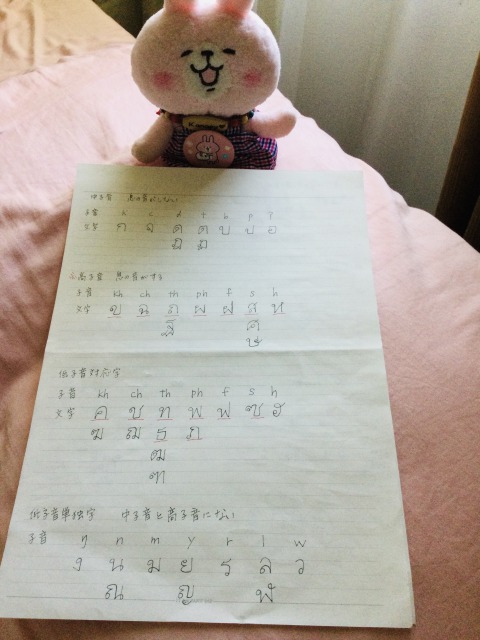 中子音 息の音がしない
子音 k c d t b p ?
文字 ก จ ด ต บ ป อ
ฎ ฏ
高子音 息の音がする
子音 kh ch th ph f s h
文字 ข ฉ ถ ผ ฝ ส ห
ฐ ศ
ษ
低子音対応字
子音 kh ch th ph f s h
文字 ค ช ท พ ฟ ซ ฮ
ฆ ฌ ธ ภ
ฒ
ฑ
低子音単独字 中子音と高子音にない
子音 ŋ n m y r l w
ง น ม ย ร ล ว
ณ ญ ฬ